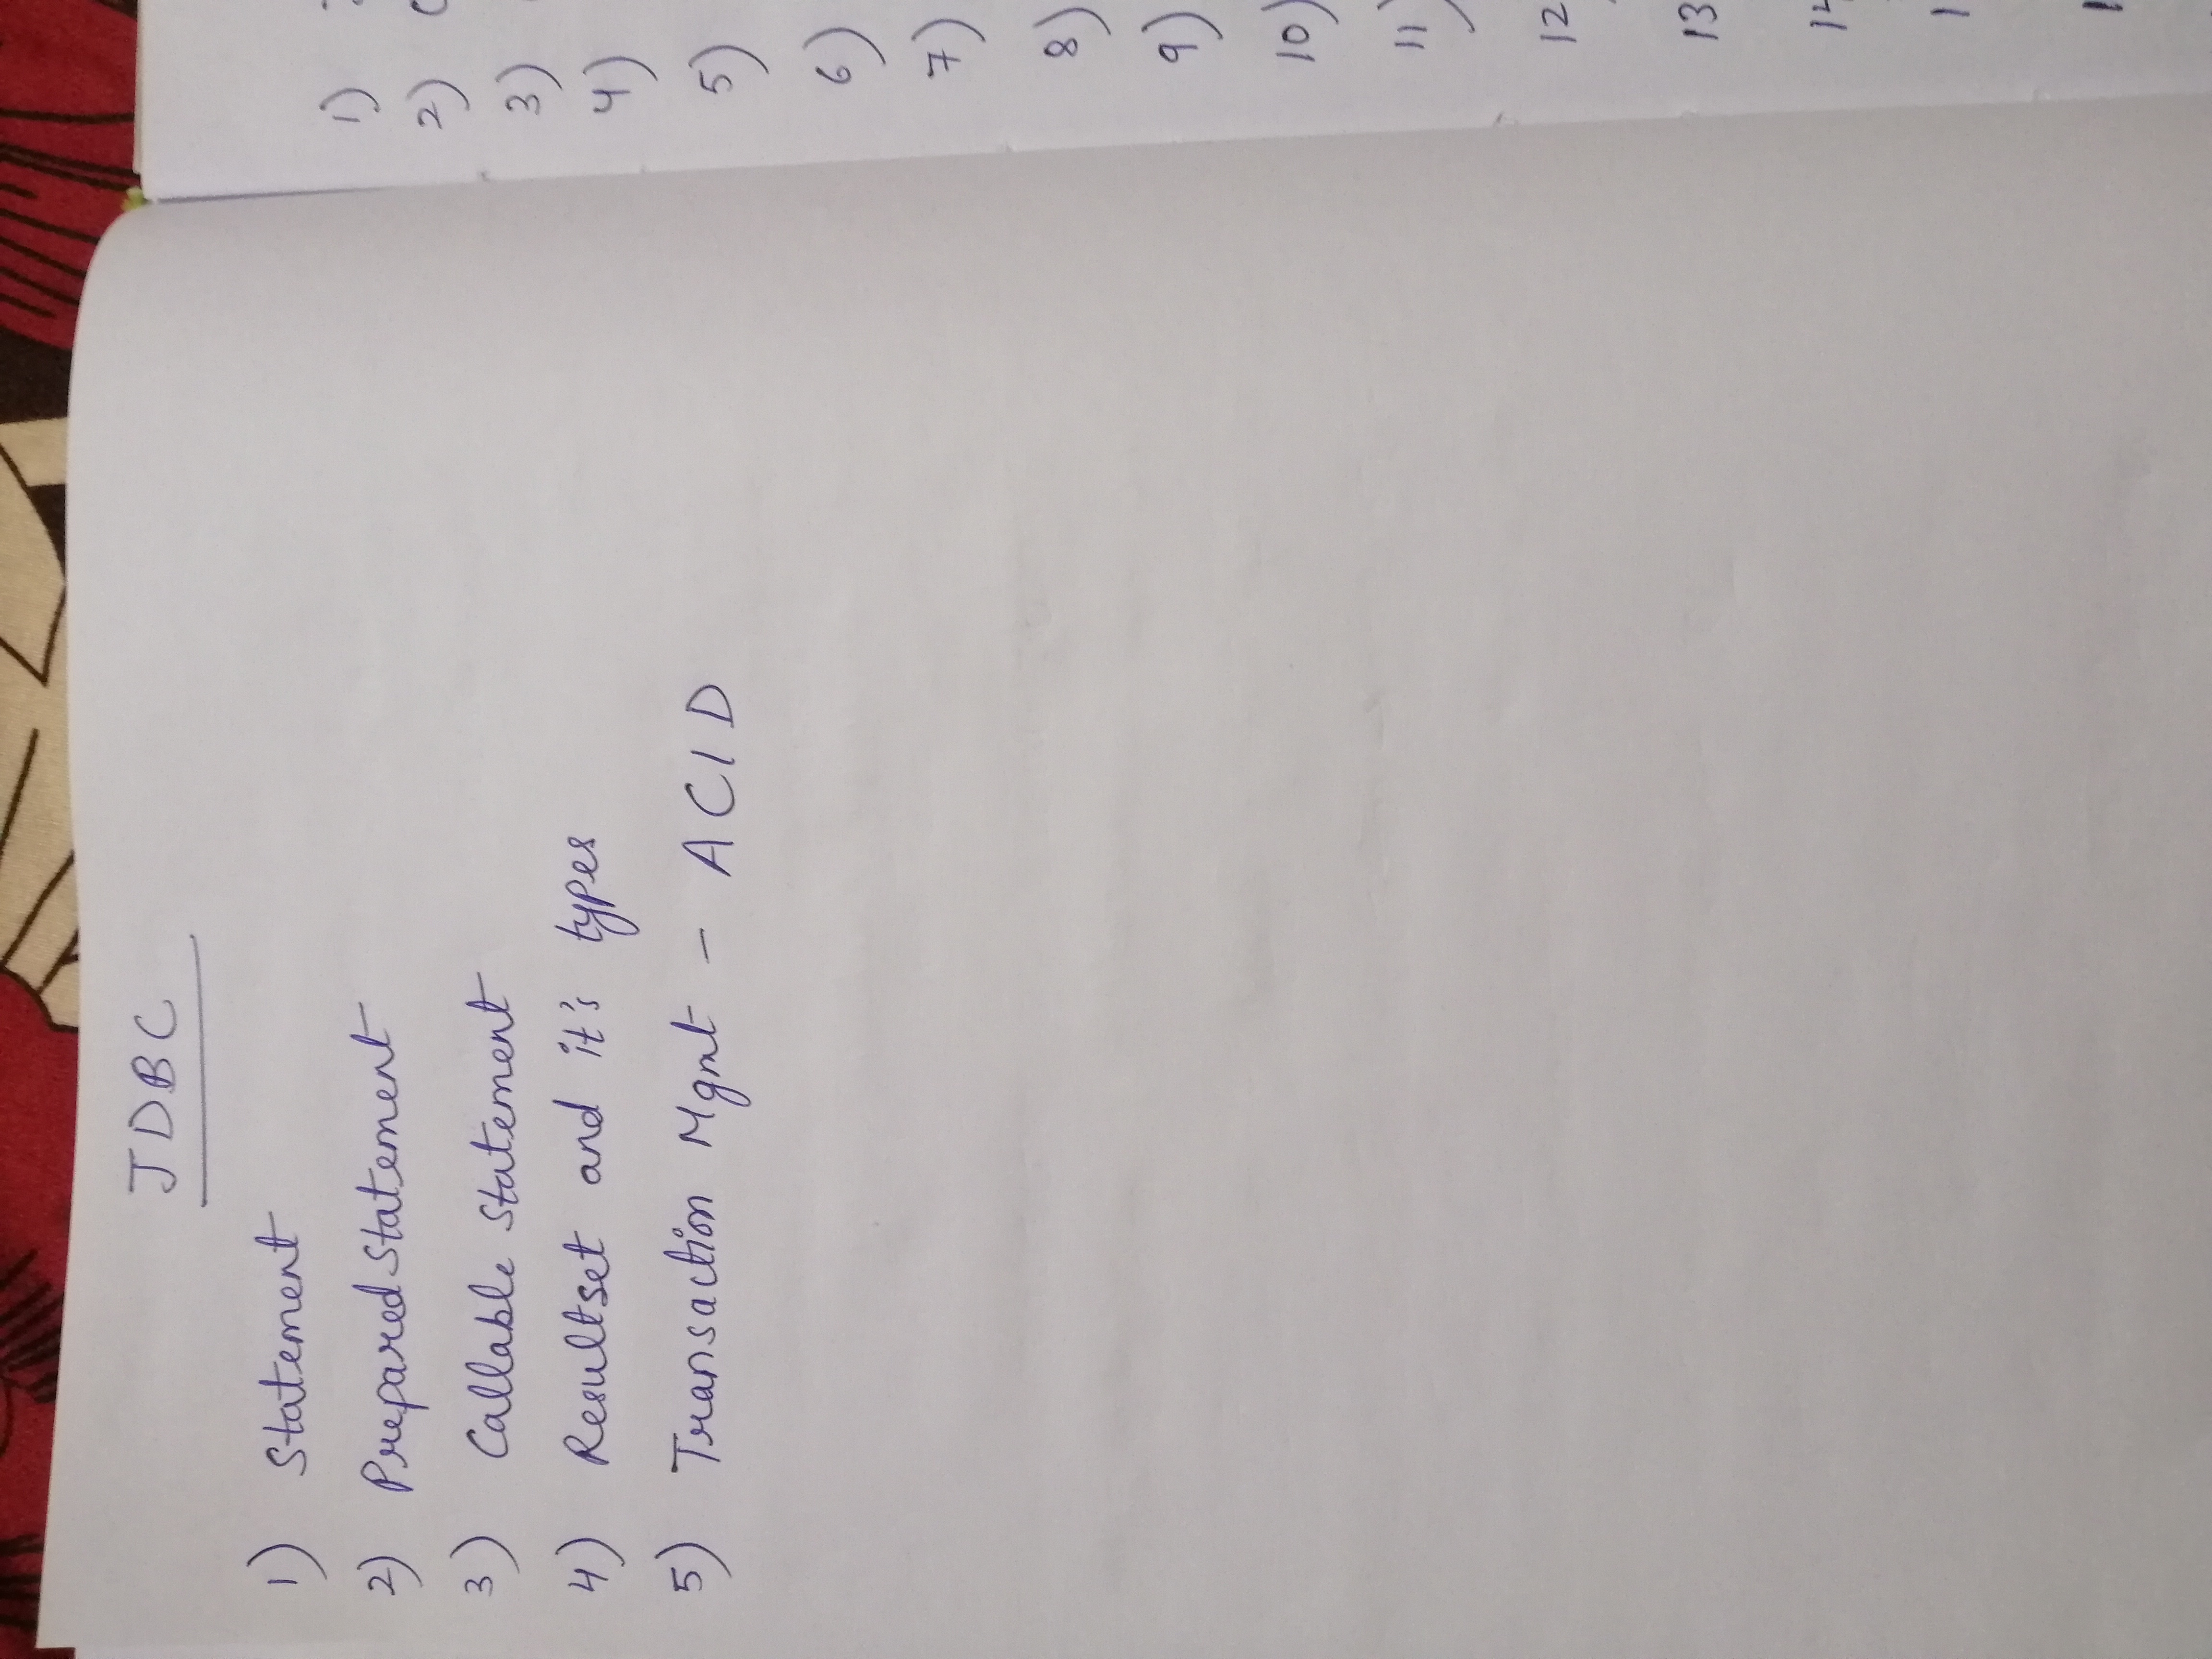 JDBC
1) Statement
2) PreparedStatement
3) Callable Statement
4) Resultset and it's types
5) Transaction Mgmt - ACID
1)
2)
3)
4)
5)
6)
7)
8)
9)
10)
11)
12
13
14